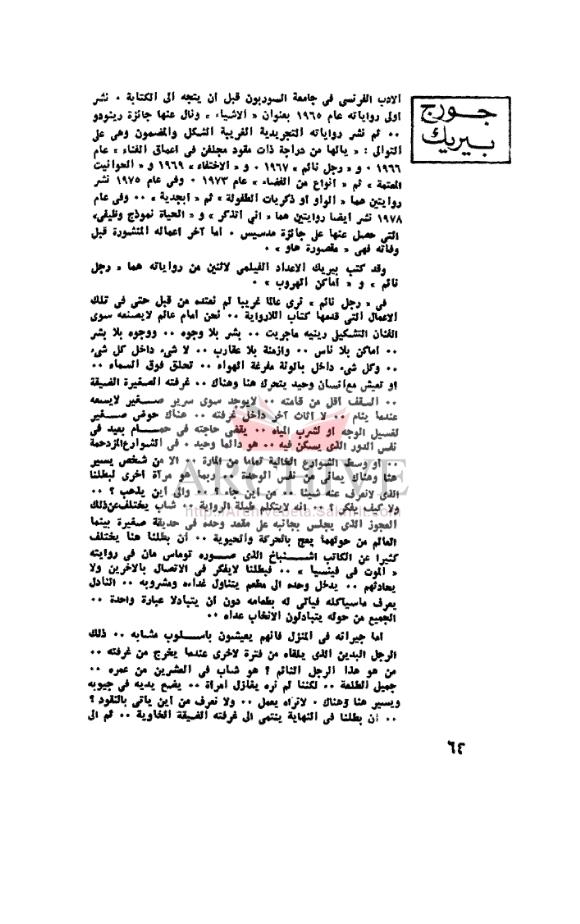 جورج
بيريك
الادب الفرنسى فى جامعة السوربون قبل ان يتجه الى الكتابة . نشر
اولى رواياته عام ١٩٦٥ بعنوان « الاشياء » ونال عنها جائزة رينودو
.. ثم نشر رواياته التجريدية الغريبة الشكل والمضمون وهى على
التوالى : « يالها من دراجة ذات مقود مجلفن فى اعماق الفناء » عام
١٩٦٦ . و « رجل نائم » ١٩٦٧ . و « الاختفاء » ١٩٦٩ و « الحوانيت
المعتمة » ثم « انواع من الفضاء » عام ١٩٧٣ . وفى عام ١٩٧٥ نشر
روايتين هما « الواو او ذكريات الطفولة » ثم « ابجدية » .. وفى عام
١٩٧٨ نشر ايضا روايتين هما « انى اتذكر » و « الحياة نموذج وظيفى »
التى حصل عنها على جائزة مدسيس . اما آخر اعماله المنشورة قبل
وفاته فهى « مقصورة هاو » .
وقد كتب بيريك الاعداد الفيلمى لاثنين من رواياته هما « رجل
نائم » و « اماكن الهروب » .
فى « رجل نائم » نرى عالما غريبا لم نعتده من قبل حتى فى تلك
الاعمال التى قدمها كتاب اللارواية .. نحن امام عالم لايصنعه سوى
الفنان التشكيلى رينيه ماجريت .. بشر بلا وجوه .. ووجوه بلا بشر
.. اماكن بلا ناس .. وازمنة بلا عقارب .. لا شىء داخل كل شىء
.. وكل شىء داخل بالونة مفرغة الهواء .. تحلق فوق السماء ..
او نعيش مع انسان وحيد يتحرك هنا وهناك .. غرفته الصغيرة الضيقة
.. السقف اقل من قامته .. لايوجد سوى سرير صغير لايسعه
عندما ينام .. لا اثاث آخر داخل غرفته .. هناك حوض صغير
لغسيل الوجه او لشرب المياه .. يقضى حاجته فى حمام بعيد فى
نفس الدور الذى يسكن فيه .. هو دائما وحيد . فى الشوارع المزدحمة
.. او وسط الشوارع الخالية تماما من المارة .. الا من شخص يسير
هنا وهناك يعانى من نفس الوحدة .. ربما هو مرآة اخرى لبطلنا
الذى لانعرف عنه شيئا .. من اين جاء ؟ .. والى اين يذهب ؟ ..
ولا كيف يفكر ؟ .. انه لايتكلم طيلة الرواية .. شاب يختلف عن ذلك
العجوز الذى يجلس بجانبه على مقعد وحده فى حديقة صغيرة بينما
العالم من حولهما يعج بالحركة والحيوية .. ان بطلنا هنا يختلف
كثيرا عن الكاتب اشنباخ الذى صوره توماس مان فى روايته
« الموت فى فينسيا » .. فبطلنا لايفكر فى الاتصال بالآخرين ولا
يحادثهم .. يدخل وحده الى مطعم يتناول غداءه ومشروبه .. النادل
يعرف ماسياكله فياتى له بطعامه دون ان يتبادلا عبارة واحدة ..
الجميع من حوله يتبادلون الانخاب عداه ..
اما جيرانه فى المنزل فانهم يعيشون باسلوب مشابه .. ذلك
الرجل البدين الذى يلقاه من فترة لاخرى عندما يخرج من غرفته ..
من هو هذا الرجل النائم ؟ هو شاب فى العشرين من عمره ..
جميل الطلعة .. لكننا لم نره يغازل امراة .. يضع يديه فى جيوبه
ويسير هنا وهناك . لانراه يعمل .. ولا نعرف من اين ياتى بالنقود ؟
.. ان بطلنا فى النهاية ينتمى الى غرفته الضيقة الخاوية .. ثم الى
ARCHIVE
٦٤